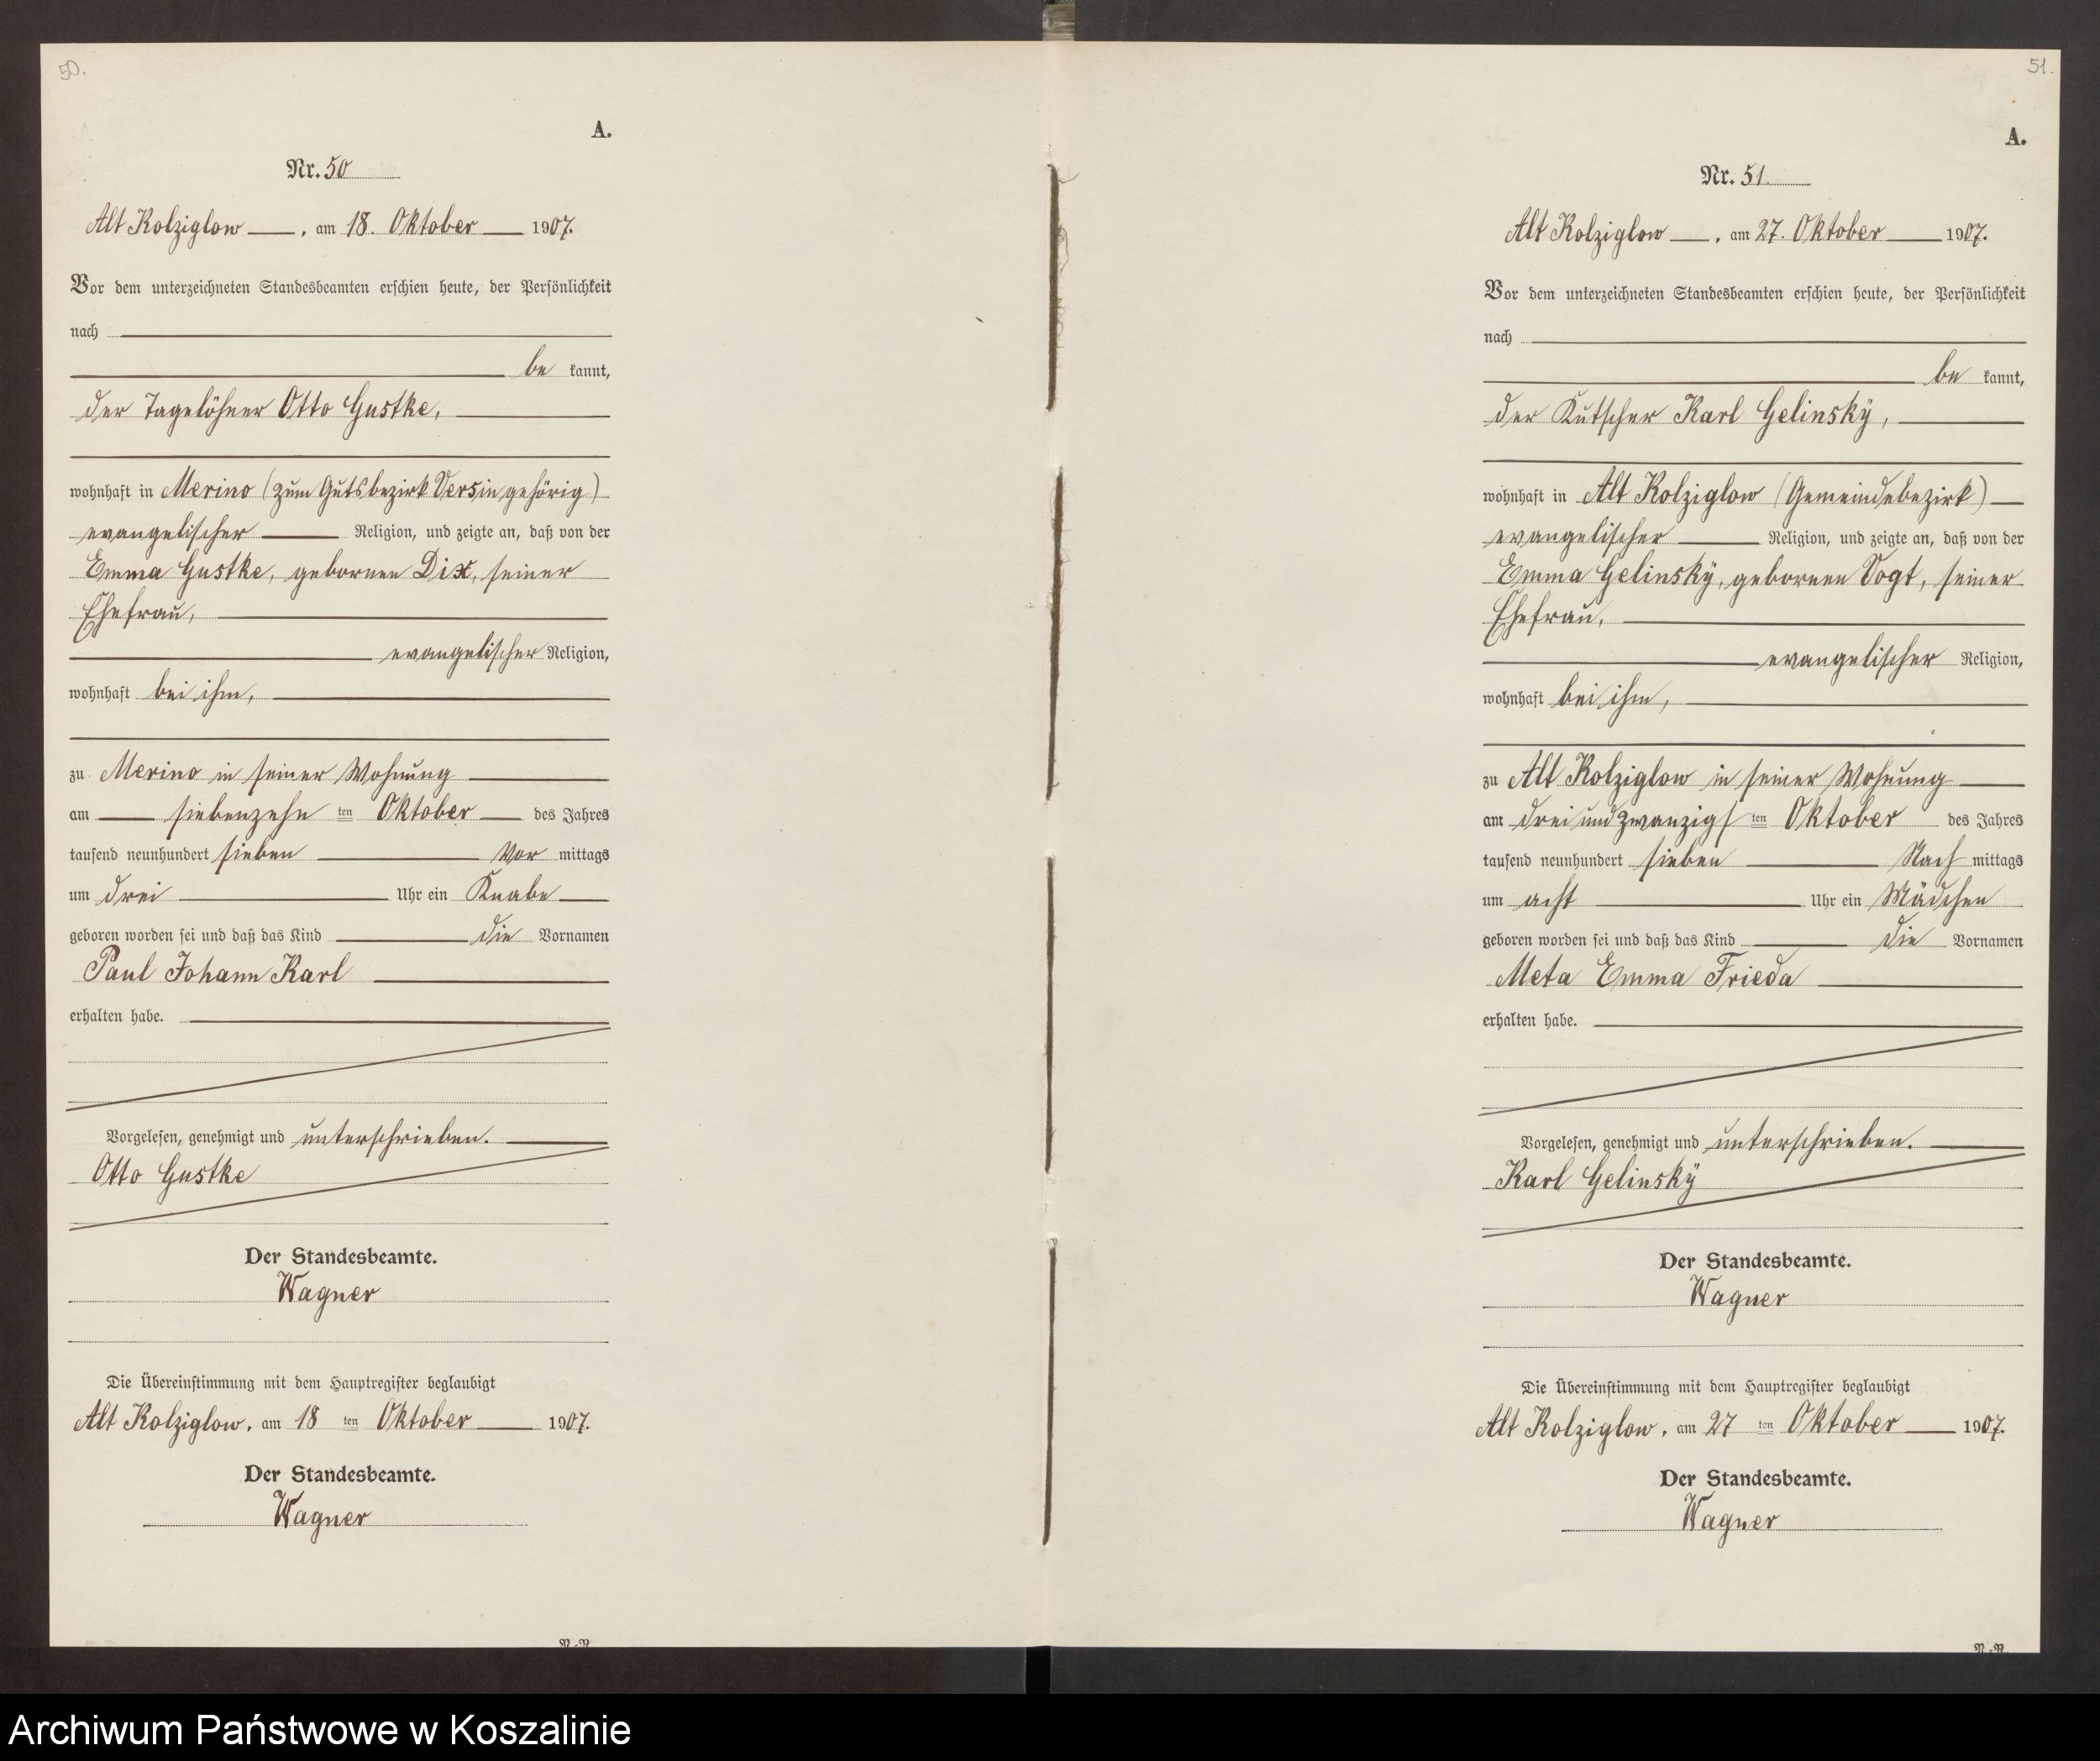 50.
A.
Nr. 50
Alt Kolziglow, am 18. Oktober 1907.
Vor dem unterzeichneten Standesbeamten erschien heute, der Persönlichkeit
nach
be kannt,
der Tagelöhner Otto Gustke,
wohnhaft in Merino (zum Gutsbezirk Versin gehörig)
evangelischer Religion, und zeigte an, daß von der
Emma Gustke, gebornen Dix, seiner
Ehefrau,
evangelischer Religion,
wohnhaft bei ihm,
zu Merino in seiner Wohnung
am siebenzehn ten Oktober des Jahres
tausend neunhundert sieben Vor mittags
um drei Uhr ein Knabe
geboren worden sei und daß das Kind die Vornamen
Paul Johann Karl
erhalten habe.
Vorgelesen, genehmigt und unterschrieben.
Otto Gustke
Der Standesbeamte.
Wagner
Die Übereinstimmung mit dem Hauptregister beglaubigt
Alt Kolziglow, am 18 ten Oktober 1907.
Der Standesbeamte.
Wagner
51.
A.
Nr. 51.
Alt Kolziglow, am 27. Oktober 1907.
Vor dem unterzeichneten Standesbeamten erschien heute, der Persönlichkeit
nach
be kannt,
der Kutscher Karl Gelinsky,
wohnhaft in Alt Kolziglow (Gemeindebezirk)
evangelischer Religion, und zeigte an, daß von der
Emma Gelinsky, gebornen Vogt, seiner
Ehefrau,
evangelischer Religion,
wohnhaft bei ihm,
zu Alt Kolziglow in seiner Wohnung
am drei und zwanzigs ten Oktober des Jahres
tausend neunhundert sieben Nach mittags
um acht Uhr ein Mädchen
geboren worden sei und daß das Kind die Vornamen
Meta Emma Frieda
erhalten habe.
Vorgelesen, genehmigt und unterschrieben.
Karl Gelinsky
Der Standesbeamte.
Wagner
Die Übereinstimmung mit dem Hauptregister beglaubigt
Alt Kolziglow, am 27 ten Oktober 1907.
Der Standesbeamte.
Wagner
Archiwum Państwowe w Koszalinie